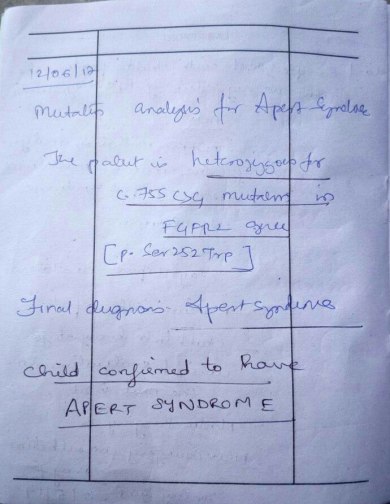 12/06/12
Mutation analysis for Apert Syndrome
The patient is heterozygous for
c.755 C>G mutations in
FGFR2 gene
[p. Ser252Trp]
Final diagnosis Apert Syndrome
child confirmed to have
APERT SYNDROME